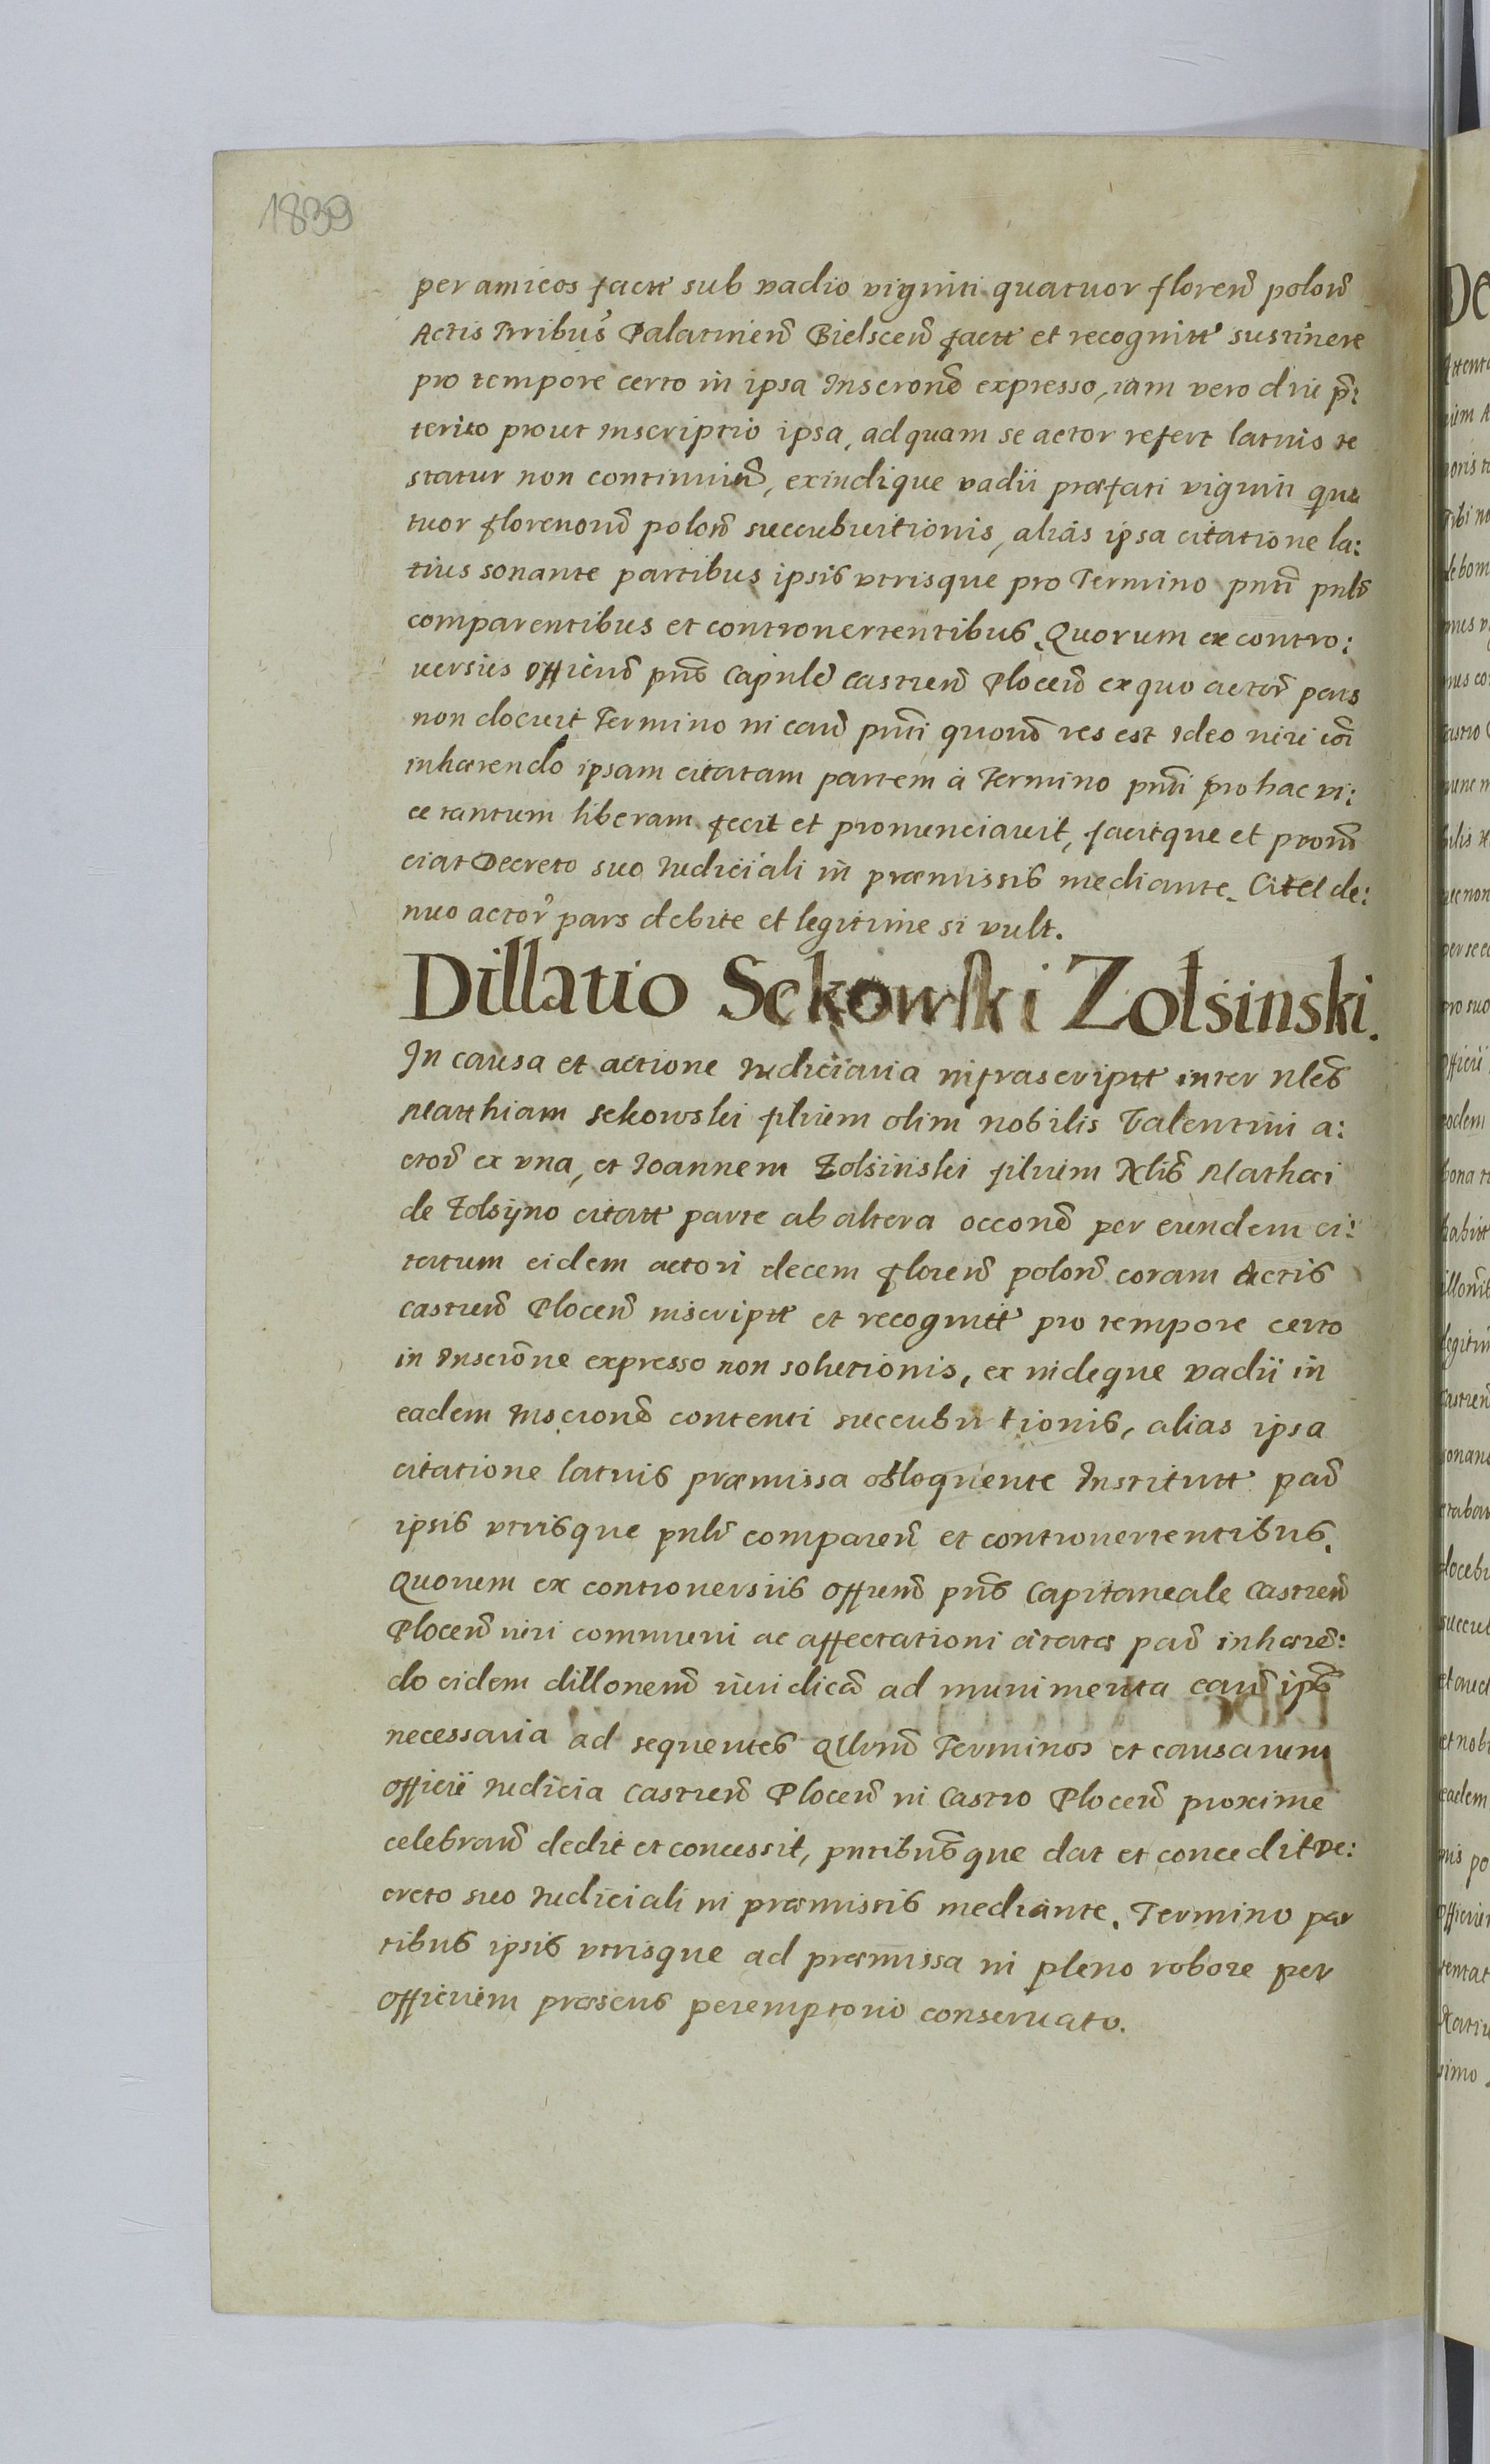 1839
per amicos factt sub vadio viginti quatuor floren̄ polon̄
Actis Trribus Palatinen̄ Bielscen̄ factt et recognitt sustinere
pro tempore certo in ipsa Inscrone̅ expresso, iam vero diu p̄:
terito prout Inscriptio ipsa, ad quam se actor refert latius te
statur non continuit, exindique vadii præfati viginti qua
tuor florenoru̅ polon̄ succubuitionis, aliàs ipsa citatione la:
tius sonante partibus ipsis vtrisque pro Termino pnti̅ pnlr̄
comparentibus et controuertentibus. Quorum ex contro:
uersiis Officiu̅ pn̄s Capnle̅ castren̄ Plocen̄ ex quo actor̄ pars
non docuit Termino in cau̅ pnti̅ quomo̅ res est Ideo iuri co̅i
inhærendo ipsam citatam partem à Termino pnti̅ pro hac vi:
ce tantum liberam fecit et pronunciauit, facitque et pronu̅
ciat Decreto suo Iudiciali in præmissis mediante. Citet de:
nuo actor̄ pars debite et legitime si vult.
Dillatio Sekowski Zolsinski.
In causa et actione Iudiciaria infrascriptt inter Nles̄
Matthiam Sekowski filium olim nobilis Valentini a:
ctor̄ ex vna, et Ioannem Zolsinski filium Nlis̄ Mathæi
de Zolsyno citatt parte ab altera occone̅ per eundem ci:
tatum eidem actori decem floren̄ polon̄ coram Actis
castren̄ Plocen̄ inscriptt et recognitt pro tempore certo
in Inscrōne expresso non solutionis, ex indeque vadii in
eadem Inscrone̅ contenti succubutionis, alias ipsa
citatione latius præmissa obloquente Institutt par̄
ipsis vtrisque pnlr̄ comparen̄ et controuertentibus.
Quorum ex controuersiis Officiu̅ pn̄s Capitaneale Castren̄
Plocen̄ iuri communi ac affectationi citatæ par̄ inhære̅:
do eidem dillonem̄ iuridica̅ ad munimenta cau̅ ips̄
necessaria ad sequentes Qllru̅ Terminos et causarum
Officii Iudicia castren̄ Plocen̄ in Castro Plocen̄ proxime
celebran̄ dedit et concessit, pntibus̄que dat et concedit De:
creto suo Iudiciali in præmissis mediante. Termino par
tibus ipsis vtrisque ad præmissa in pleno robore per
officium præsens peremptorio conseruato.